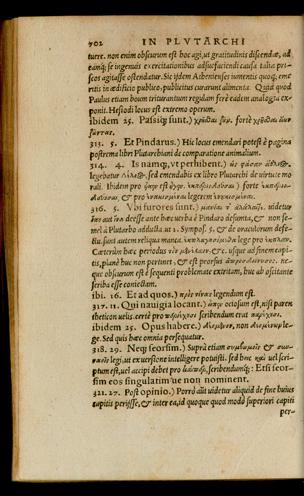 702 IN PLVTARCHI
turire. non enim obscurum est hoc agi, ut gratitudinis discendæ, ad
eamq́; se ingenuis exercitationibus adsuefaciendi causa talia pri-
scos agitasse ostendatur. Sic ijdem Athenienses iumentis quoq; eme
ritis in ædificio publico, publicitus curarunt alimenta. Quid quod
Paulus etiam bouem triturantum regulam ferè eadem analogia ex
ponit. Hesiodi locus est extremo operum.
ibidem 25. Passiq́; sunt.) forte
313. 5. Et Pindarus.) Hic locus emendari potest è pagina
postrema libri Plutarchiani de comparatione animalium.
314. 4. Is namq;, ut perhibent.)
legebatur sed emendabis ex libro Plutarchi de uirtute mo
rali. Ibidem pro forte
& pro legerem
316. 5. Vbi furores sunt.)
deesse ante hæc uerba è Pindaro desumta, & non se-
mel à Plutarcho adducta ut 1. Sympos. 5. & de oraculorum defe-
ctu. sunt autem reliqua manca. lege pro
Cæterùm hæc periodus &c. usque ad finem capi-
tis, planè huc non pertinet, & est prorsus ne-
que obscurum est è sequenti problemate extritam, huc ab oscitante
scriba esse coniectam.
ibi. 16. Et ad quos.) legendum est.
317. 11. Qui nauigia locant.) octosum est, nisi paren
theticωn uelis. certè pro scribendum erat
ibidem 25. Opus habere.) non le
ge. Sed quis hæc omnia persequatur.
318. 29. Neq; seorsim.) Supra etiam
legi, ut ex uersione intelligere potuisti. sed huc uel scri-
ptum est, uel accipi debet pro scribendumq́;: Etsi seor-
sim eos singulatim ue non nominent.
321. 27. Post opinio.) Porrò aut uidetur aliquid de fine huius
capitis perijsse, & inter ea, id quoque quod modò superiori capiti
per-